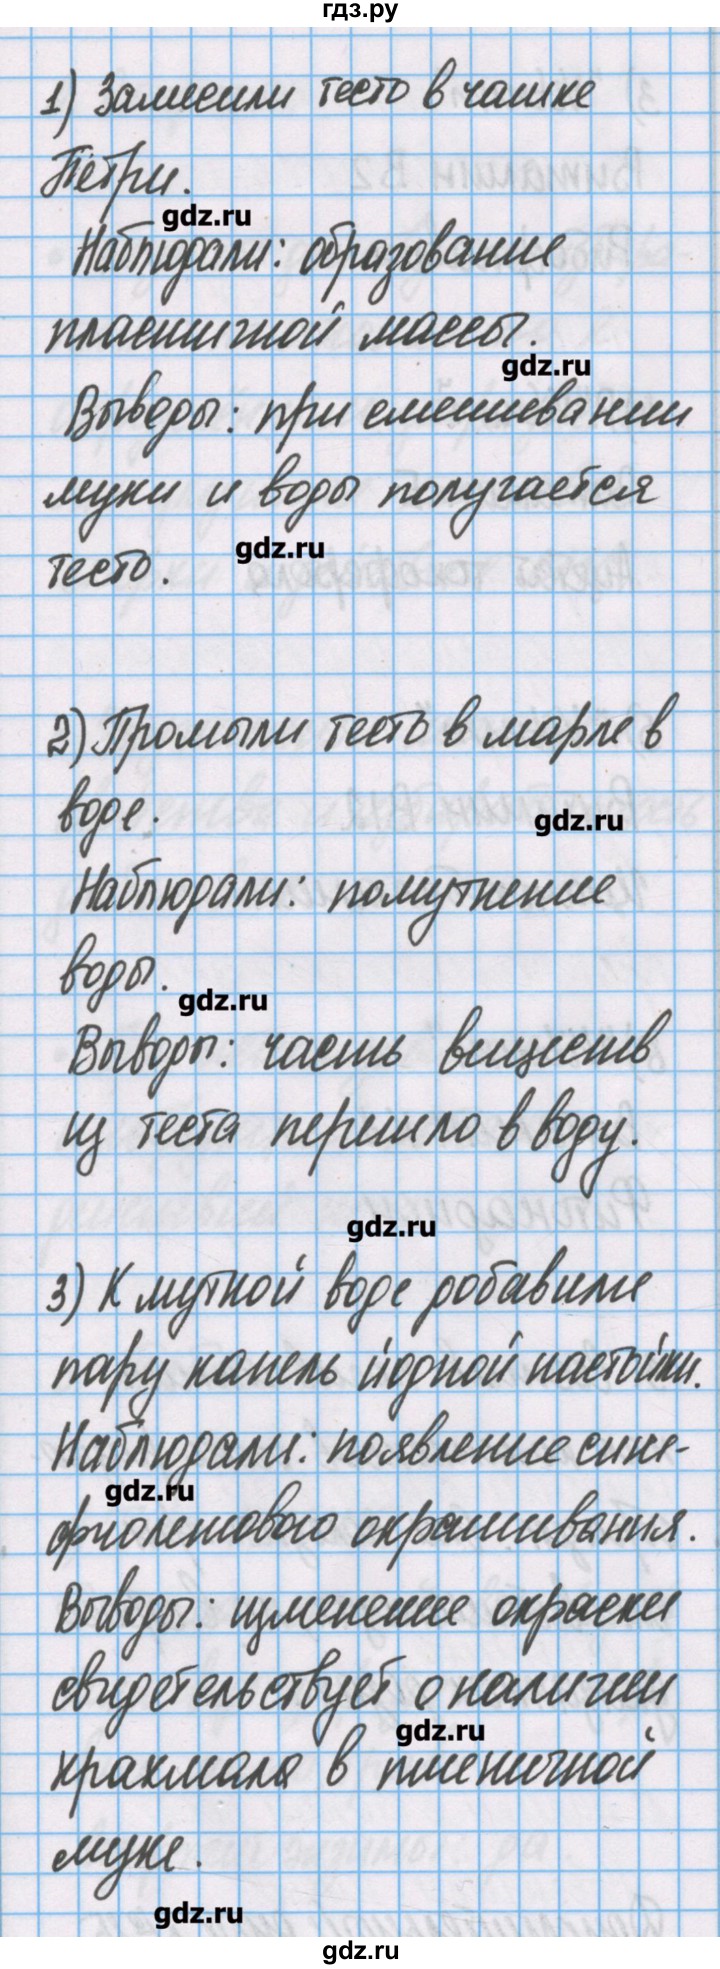 гдз.ру
1) Замесили тесто в чашке
Петри.
gdz.ru
Наблюдали: образование
пластичной массы.
gdz.ru
Выводы: при смешивании
муки и воды получается
gdz.ru
тесто.
2) Промыли тесто в марле в
воде.
gdz.ru
Наблюдали: помутнение
воды.
gdz.ru
Выводы: часть веществ
из теста перешло в воду.
gdz.ru
3) К мутной воде добавили
пару капель йодной настойки.
Наблюдали: появление сине-
gdz.ru
фиолетового окрашивания.
Выводы: изменение окраски
свидетельствует о наличии
gdz.ru
крахмала в пшеничной
муке.
gdz.ru
gdz.ru